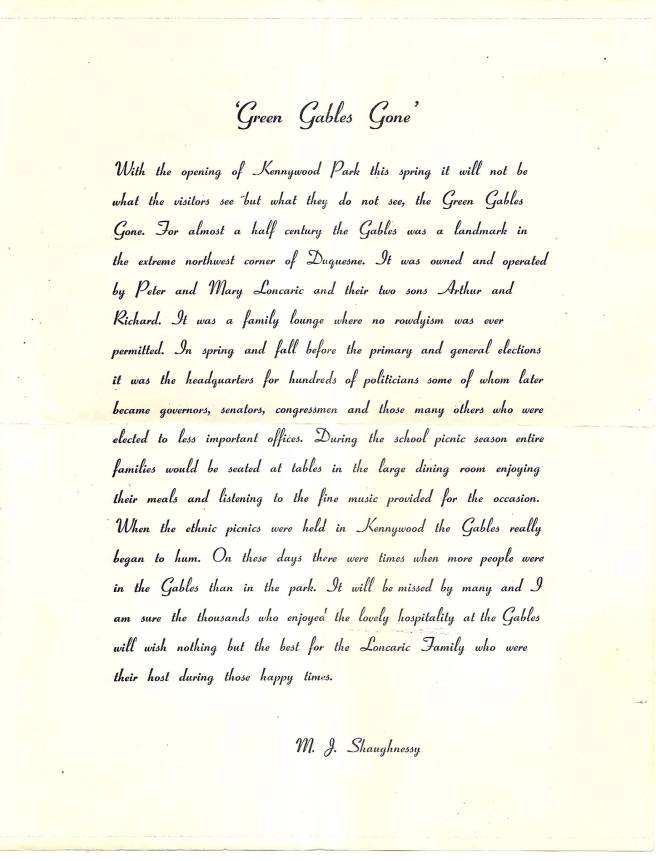 'Green Gables Gone'
With the opening of Kennywood Park this spring it will not be
what the visitors see but what they do not see, the Green Gables
Gone. For almost a half century the Gables was a landmark in
the extreme northwest corner of Duquesne. It was owned and operated
by Peter and Mary Loncaric and their two sons Arthur and
Richard. It was a family lounge where no rowdyism was ever
permitted. In spring and fall before the primary and general elections
it was the headquarters for hundreds of politicians some of whom later
became governors, senators, congressmen and those many others who were
elected to less important offices. During the school picnic season entire
families would be seated at tables in the large dining room enjoying
their meals and listening to the fine music provided for the occasion.
When the ethnic picnics were held in Kennywood the Gables really
began to hum. On these days there were times when more people were
in the Gables than in the park. It will be missed by many and I
am sure the thousands who enjoyed the lovely hospitality at the Gables
will wish nothing but the best for the Loncaric Family who were
their host during those happy times.
M. J. Shaughnessy